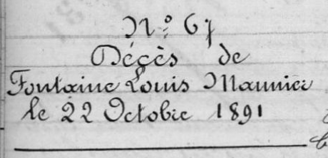 N.º 67
Décès de
Fontaine Louis Maunier
le 22 Octobre 1891